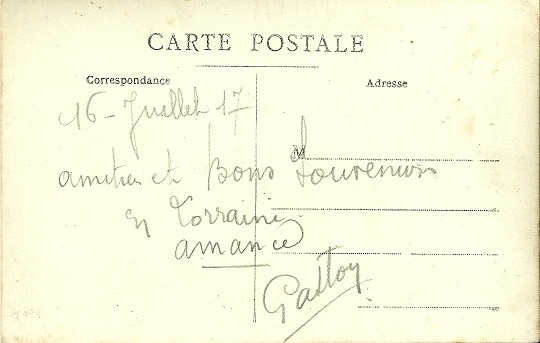 CARTE POSTALE
Correspondance
Adresse
16 - Juillet 17
M
amities et Bons Souvenirs
en Lorraine
amance
Gaston